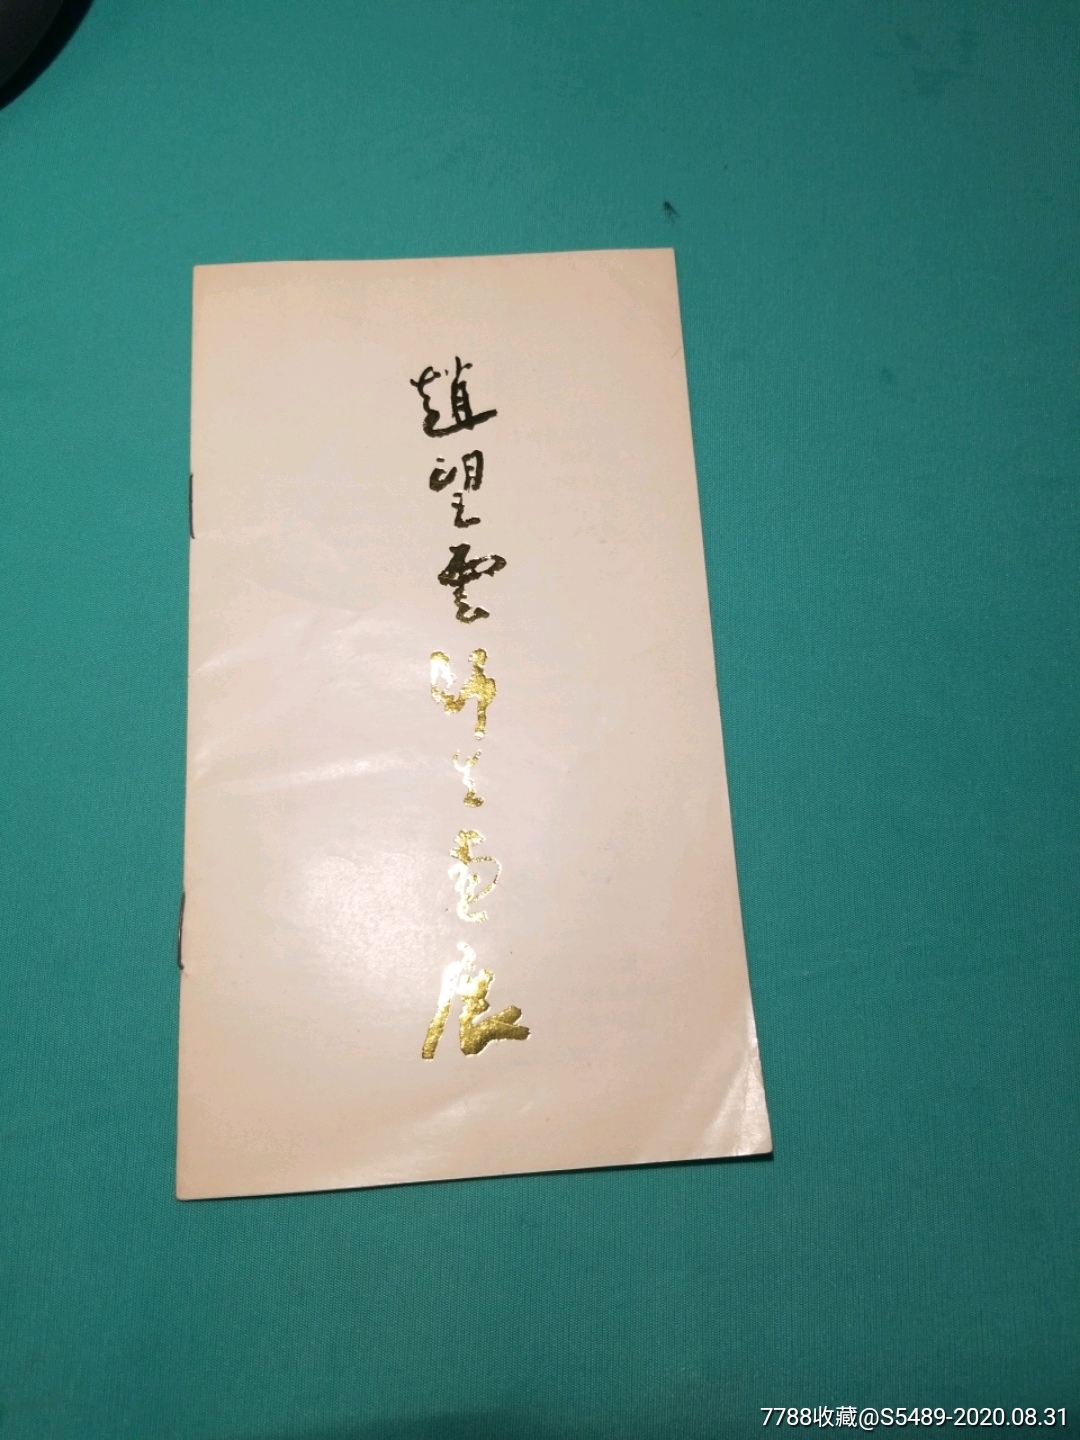 趙望雲师生畫展
7788收藏@S5489-2020.08.31